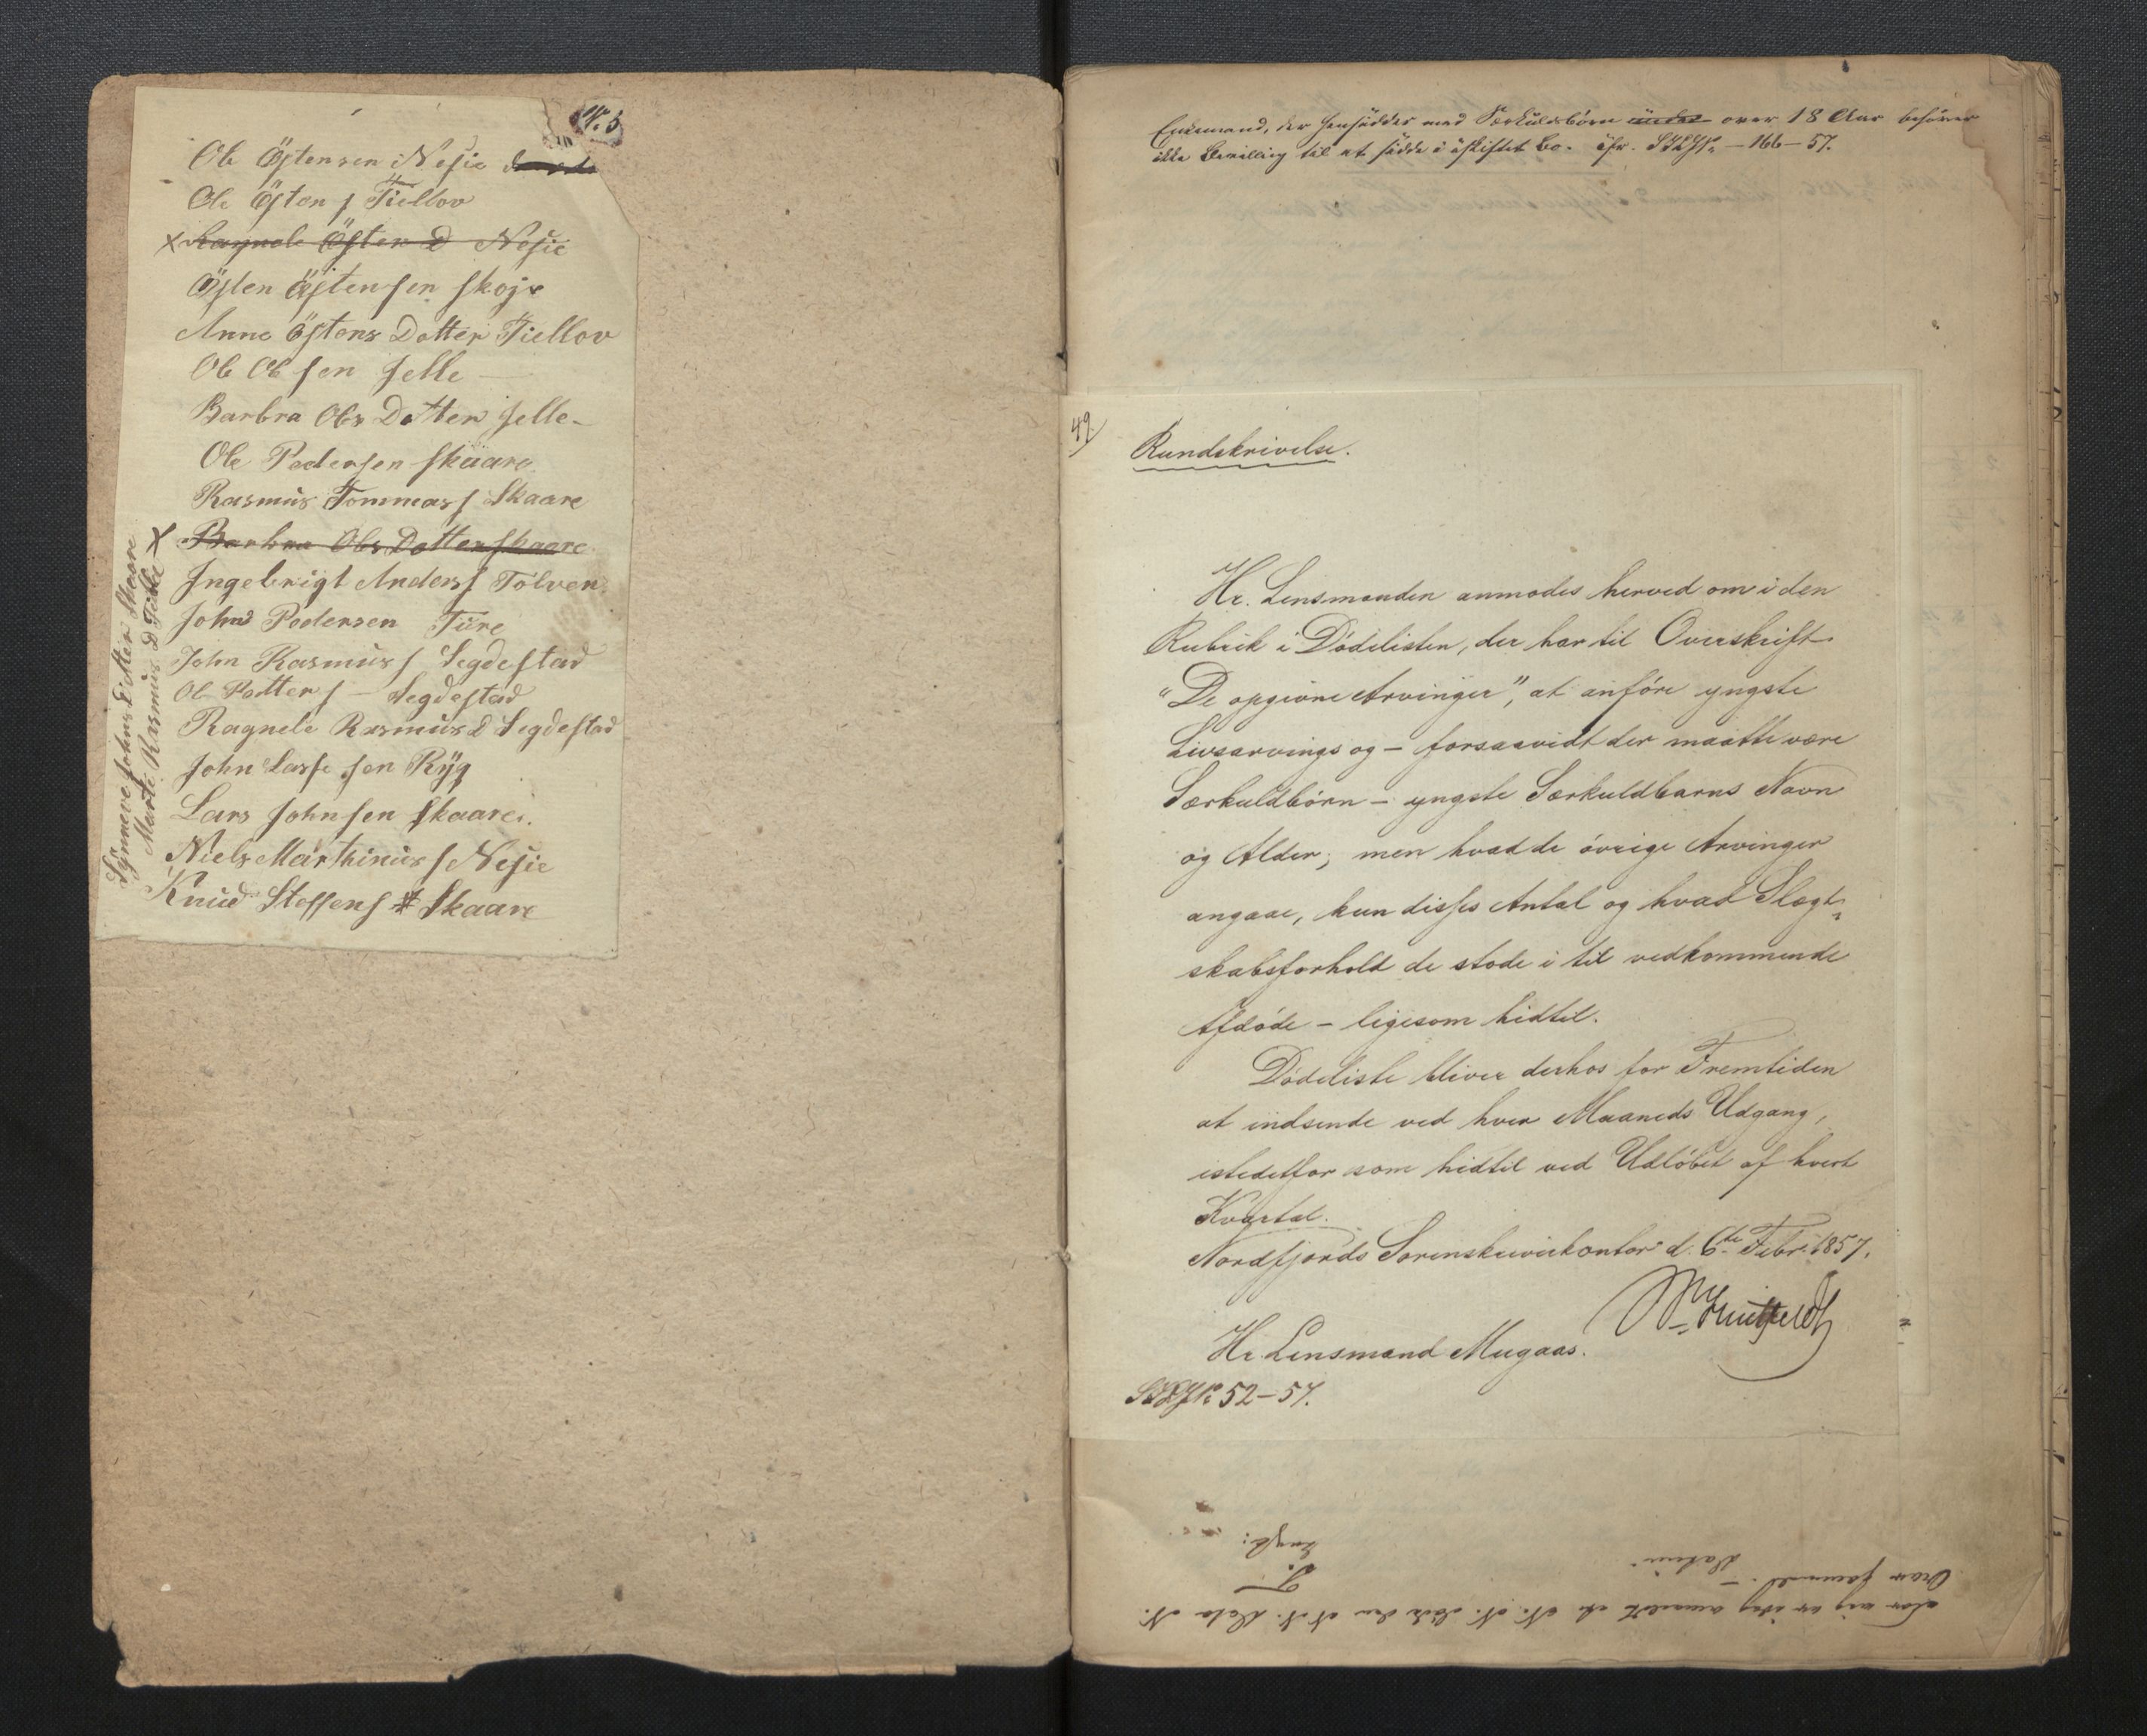 No. 5
Ole Östensen Nesie
Ole Östens Tiellov
x Ragnele Östen D Nesie
Östen Östensen skoje
Anne Östens Datter Tiellov
Ole Olesen selle
Barbra Ols Datter selle
Ole Pedersen skaare
Rasmus Tommas s Skaare
x Barbra Ols Datter skaare
Ingebrigt Anders s Tolven
John Pedersen Ture
John Rasmus s Segdestad
Ole Petter s - Segdestad
Ragnele Rasmus D Segdestad
John Lasse sen Ryg
Lars Johnsen skaare
Niels Marthinus s Nesie
Knud Steffens s Skaare
Synneve Johns Datter Skaare
Marte Rasmus D
Enkemand, der hensidder med Særkuldsbörn under over 18 Aar behöver
ikke Bevilling til at sidde i uskiftet Bo. - 166 - 57.
49)
Rundskrivelse.
Hr. Lensmanden anmodes herved om i den
Rubrik i Dödelisten, der har til Overskrift
"De opgivne Arvinger", at anföre yngste
Livsarvings og - forsaavidt der maatte være
Særkuldbörn - yngste Særkuldbarns Navn
og Alder; men hvad de övrige Arvinger
angaae, kun disses Antal og hvad Slægt-
skabsforhold de stode i til vedkommende
Afdöde - ligesom hidtil.
Dödeliste bliver derhos for Fremtiden
at indsende ved hver Maaneds Udgang,
istedetfor som hidtil ved Udlöbet af hvert
Kvartal.
Nordfjords Sorenskriverkontor d. 6te Febr. 1857.
Huitfeldt
Hr. Lensmand Mugaas.
52-57.
For mig er idag anmeldt at N. N. döde den
Datum